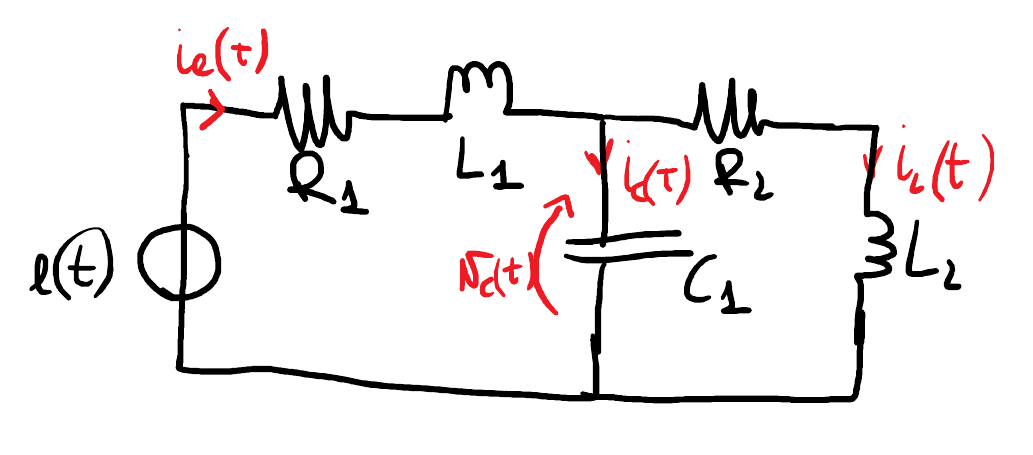 ie(t)
R1
L1
ic(t)
R2
iL(t)
e(t)
vc(t)
C1
L2